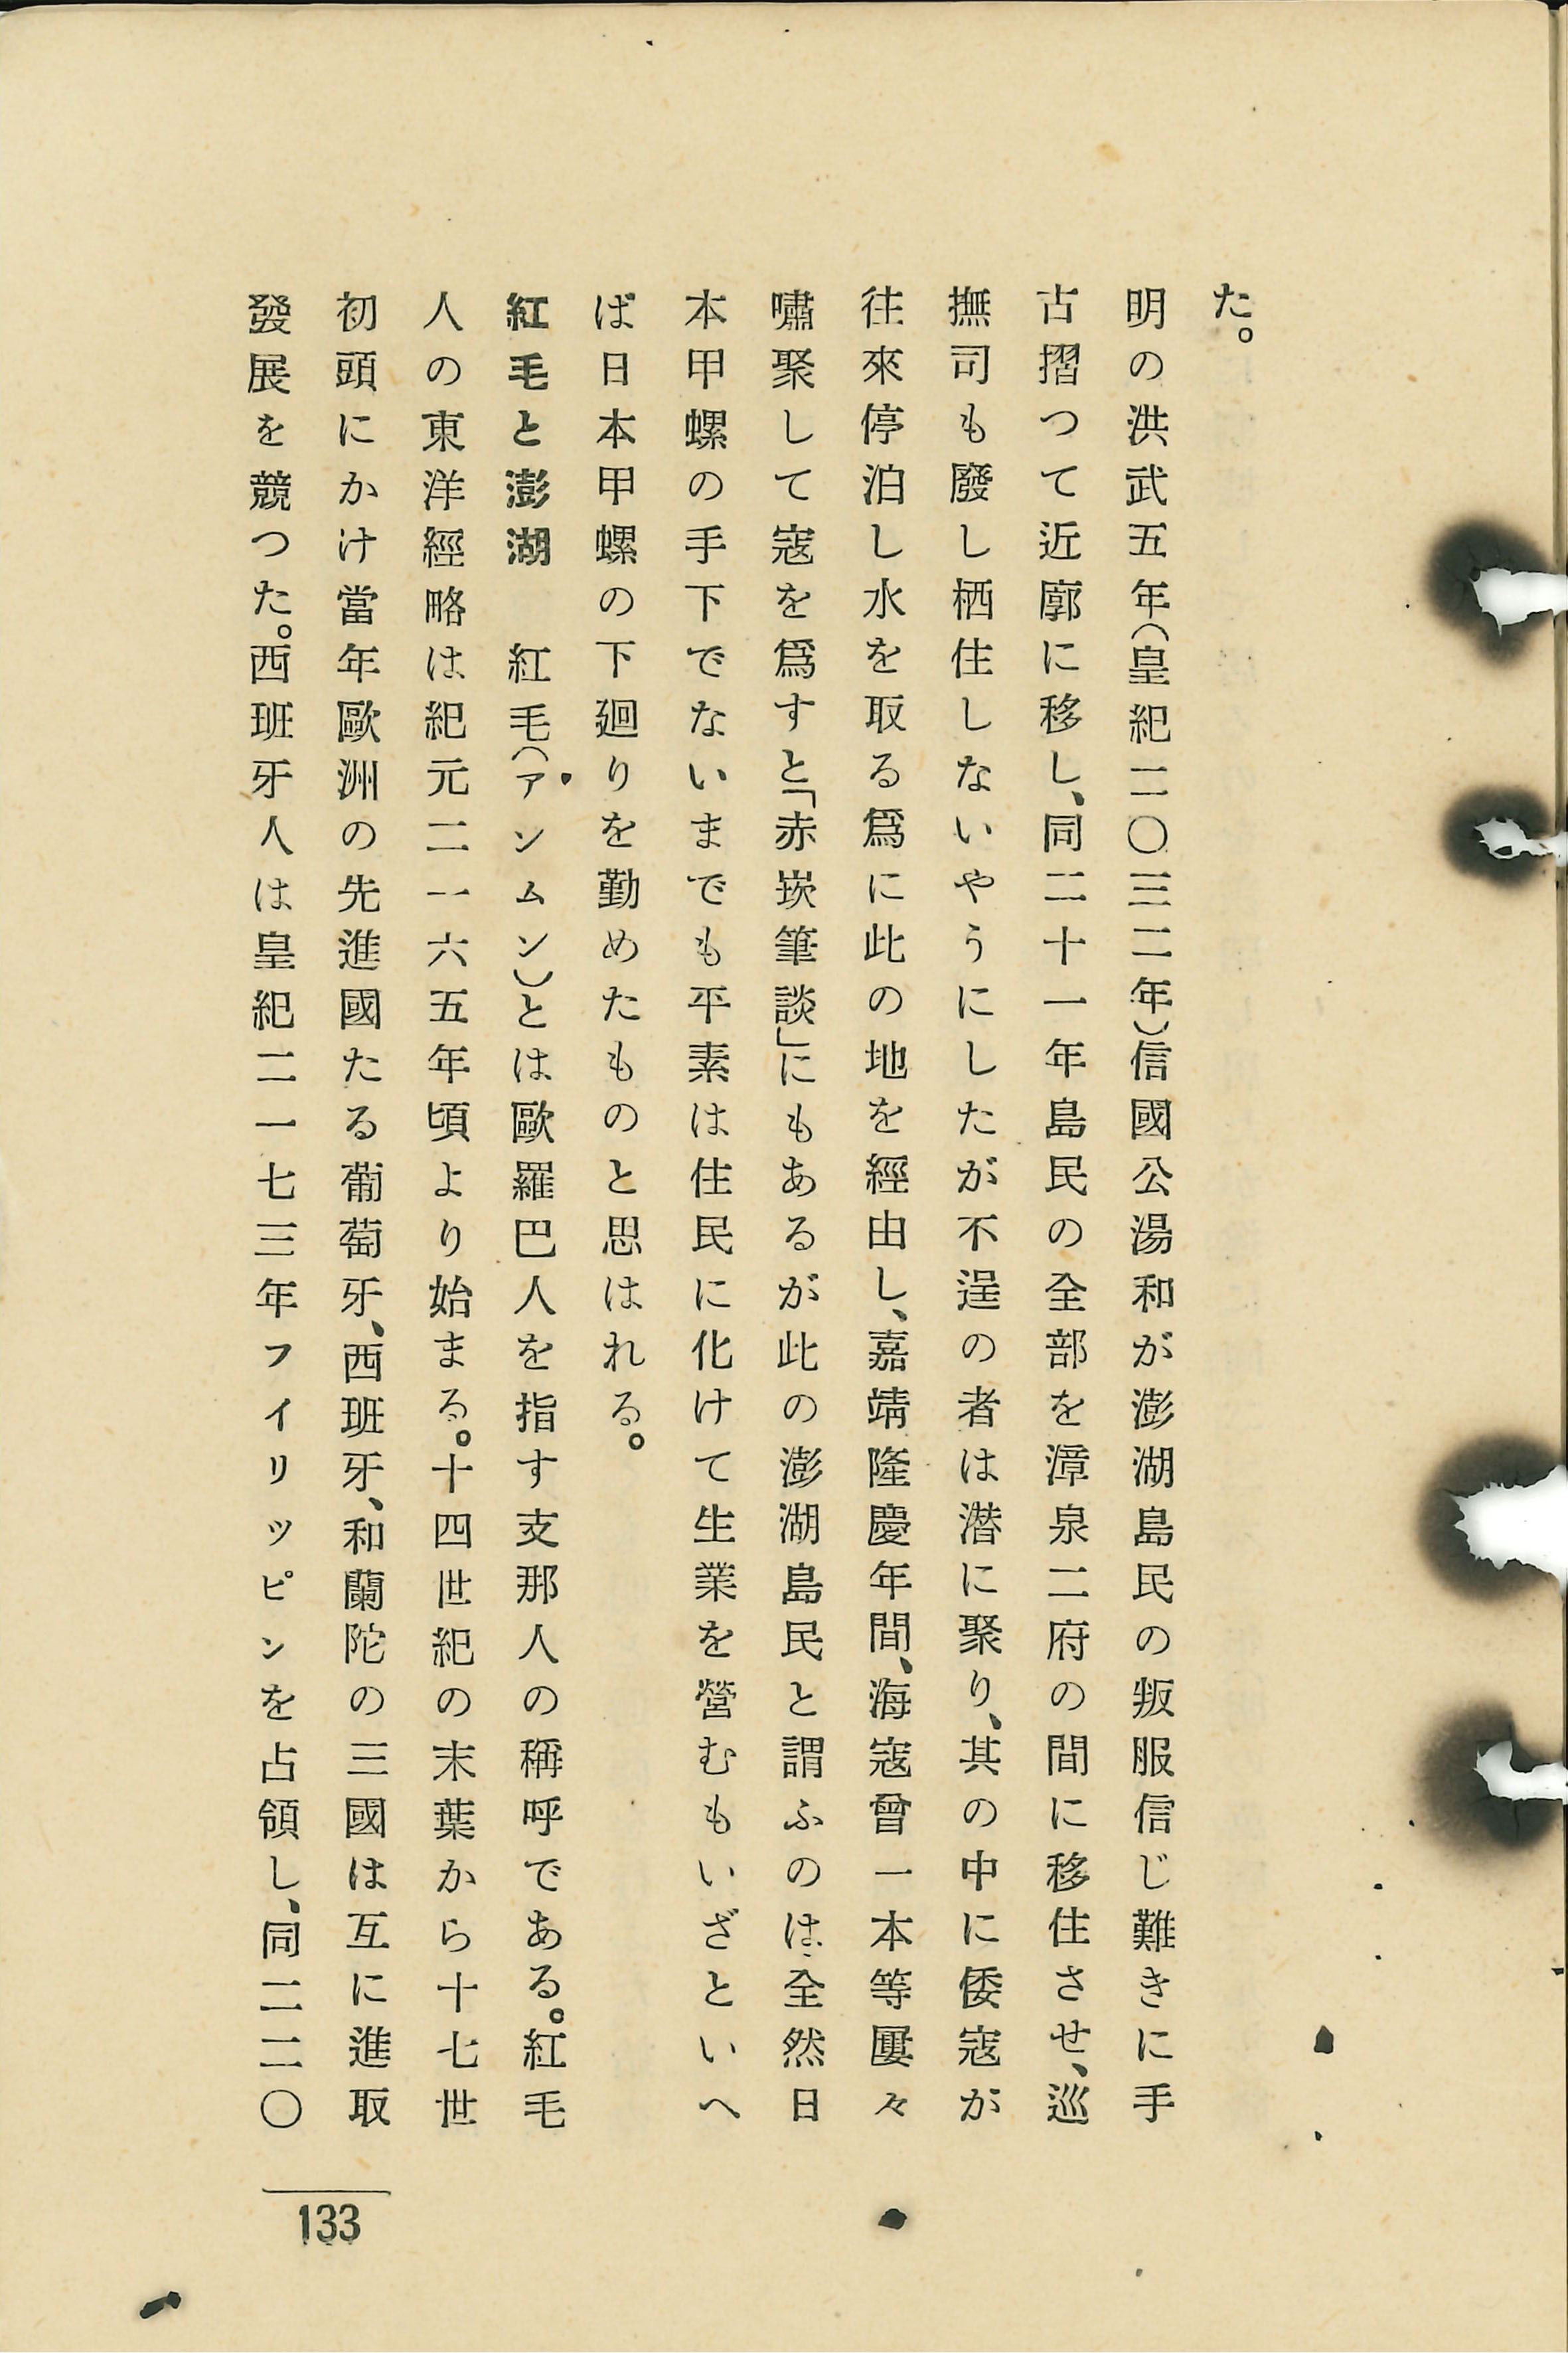 た。
明の洪武五年(皇紀二〇三二年)信國公湯和が澎湖島民の叛服信じ難きに手
古摺つて近廓に移し、同二十一年島民の全部を漳泉二府の間に移住させ、巡
撫司も廢し栖住しないやうにしたが不逞の者は潜に聚り、其の中に倭寇が
往來停泊し水を取る爲に此の地を經由し、嘉靖隆慶年間、海寇曾一本等屢々
嘯聚して寇を爲すと「赤崁筆談」にもあるが此の澎湖島民と謂ふのは全然日
本甲螺の手下でないまでも平素は住民に化けて生業を營むもいざといへ
ば日本甲螺の下廻りを勤めたものと思はれる。
紅毛と澎湖　紅毛(アンムン)とは歐羅巴人を指す支那人の稱呼である。紅毛
人の東洋經略は紀元二一六五年頃より始まる。十四世紀の末葉から十七世
初頭にかけ當年歐洲の先進國たる葡萄牙、西班牙、和蘭陀の三國は互に進取
發展を競つた。西班牙人は皇紀二一七三年フイリッピンを占領し、同二二〇
133